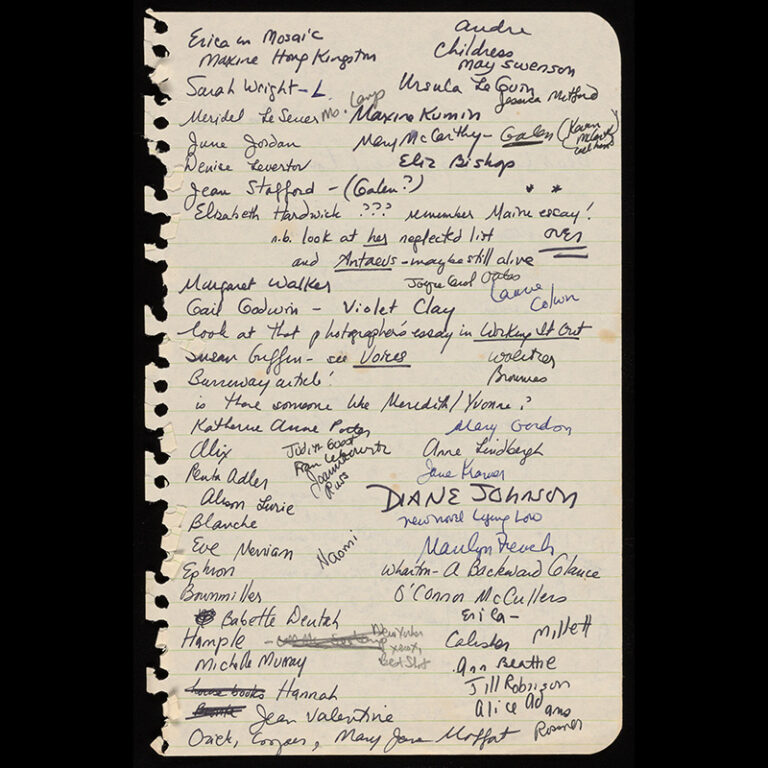 Erica in Mosaic
Maxine Hong Kingston
andre
Childress
May Swenson
Sarah Wright - L
Ursula Le Guin
Jessica Mitford
Meridel Le Seuer
Maxine Kumin
June Jordan
Mary McCarthy - Galen (Karen
Denise Levertov
Eliz Bishop
Jean Stafford - (Galen?)
* *
Elizabeth Hardwick ??? remember Maine essay!
n.b. look at her neglected list
OVER
and Antaeus - maybe still alive
Margaret Walker
Joyce Carol Oates
Laurie
Colwin
Gail Godwin - Violet Clay
look at that photographer's essay in Working It Out
Susan Griffin - see Voices
Wolitzer
Burroway article!
is there someone like Meredith/Yvonne?
Katherine Anne Porter
Mary Gordon
Alix
Judith Guest
Fran Lebowitz
Joanna
Russ
Anne Lindbergh
Jane Kramer
Renata Adler
Alison Lurie
DIANE JOHNSON
new novel Lying Low
Blanche
Eve Merriam
Naomi
Marilyn French
Ephron
Wharton - A Backward Glance
Brownmiller
O'Connor McCullers
Babette Deutsch
Erica -
Hample -
New Yorker
Calisher
Millett
Michele Murray
Ann Beattie
Jill Robinson
Hannah
Alice Adams
Jean Valentine
Rossner
Ozick, Cooper, Mary Jane Moffat